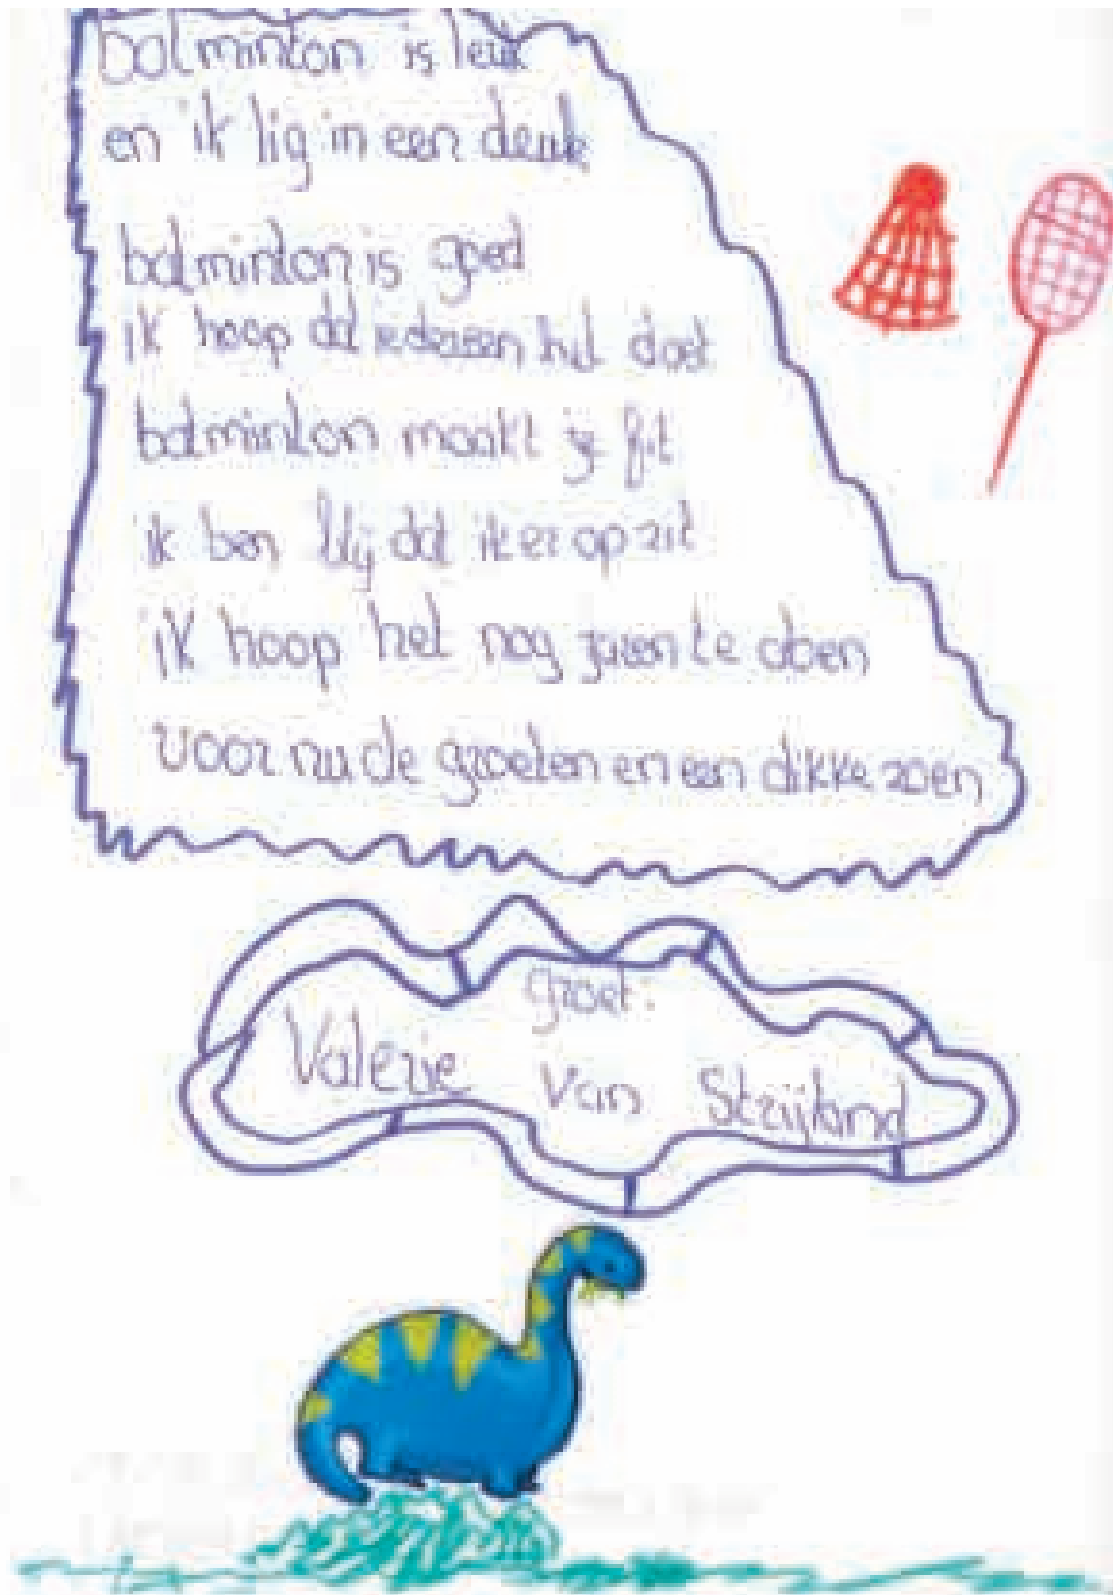 batminton is leuk
en ik lig in een deuk
batminton is goed
ik hoop dat iedereen het doet
batminton maakt je fit
ik ben blij dat ik er op zit
ik hoop het nog jaren te doen
voor nu de groeten en een dikke zoen
groet:
Valerie van Strijland